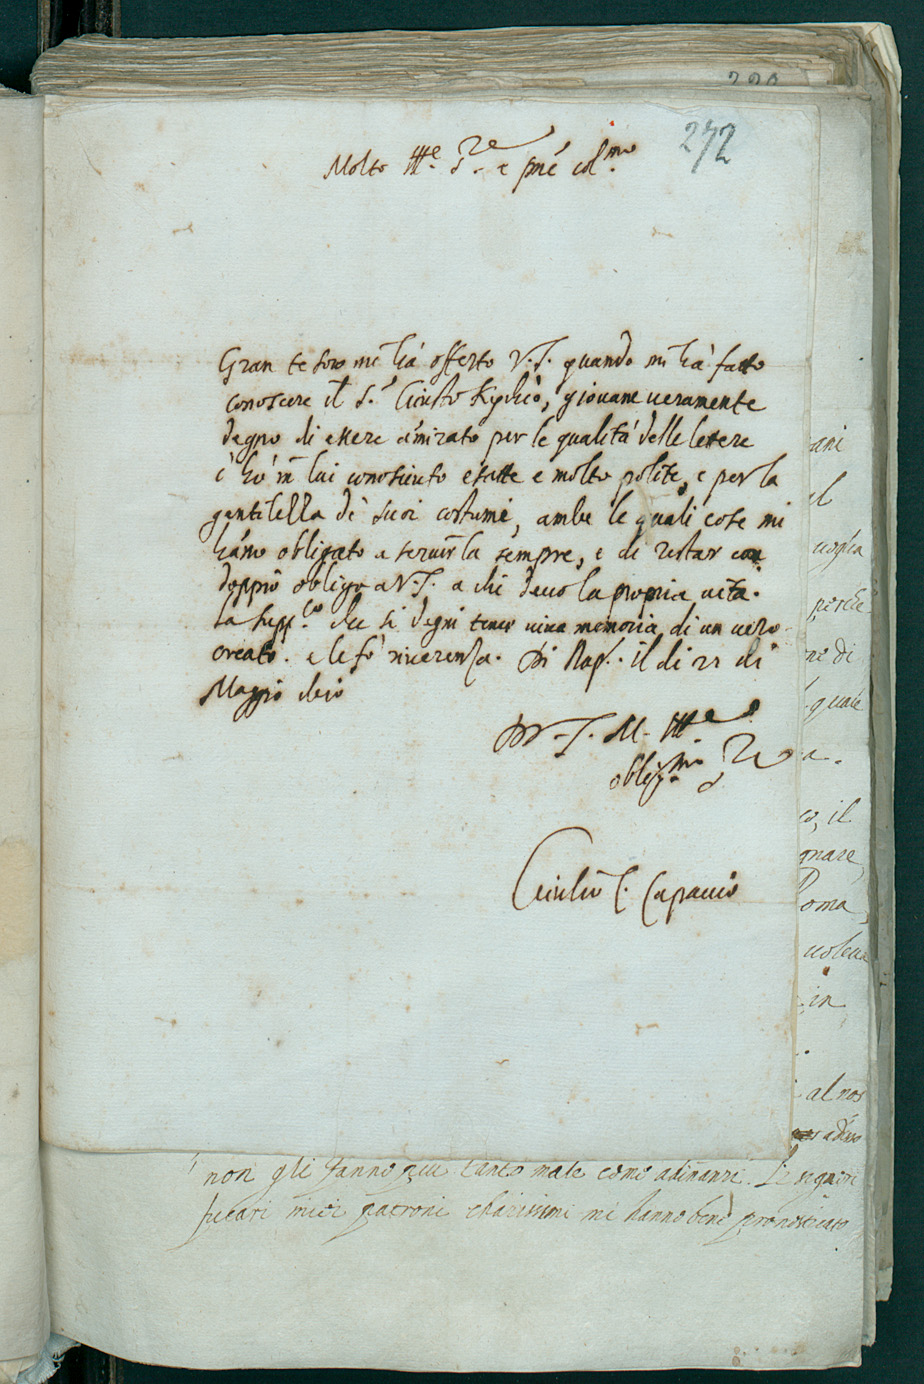 272
Molto Ill.e S.re e prõe col.mo
Gran tesoro mi hà offerto V.S. quando mi hà fatto
conoscere il S.r Giusto Rychio, giovane veramente
degno di essere amirato per le qualità delle lettere
c'hò in lui conosciuto esatte e molto polite, e per la
gentilezza di suoi costumi, ambe le quali cose mi
hano obligato a servirla sempre, e di restar con
doppio obligo a V.S. a chi devo la propria vita.
La supp.co che si degni tener viva memoria di un vero
creato. e le fò riverenza. Di Nap. il di 21 di
Maggio
D V.S. M. Ill.e
oblig.mo S.re
Giulio C. Capaccio
ani
al
voglia
perche
ne di
quale
a.
co, il
gnare
Roma
voleva
in
al nos
non gli fanno più tanto male come
miei patroni charissimi mi hanno bene pronosticato